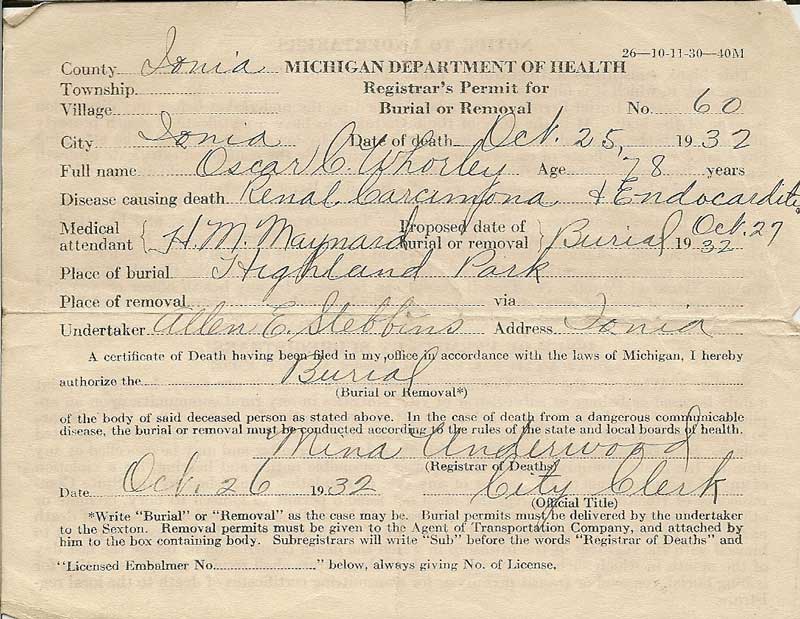 26—10-11-30—40M
County Ionia MICHIGAN DEPARTMENT OF HEALTH
Township Registrar's Permit for
Village Burial or Removal No. 60
City Ionia Date of death Oct. 25, 1932
Full name Oscar C. Whorley Age 78 years
Disease causing death Renal Carcimona & Endocarditis
Medical attendant { H. M. Maynard Proposed date of burial or removal } Burial Oct. 27 1932
Place of burial Highland Park
Place of removal via
Undertaker Allen E. Stebbins Address Ionia
A certificate of Death having been filed in my office in accordance with the laws of Michigan, I hereby
authorize the Burial
(Burial or Removal*)
of the body of said deceased person as stated above. In the case of death from a dangerous communicable
disease, the burial or removal must be conducted according to the rules of the state and local boards of health.
Mina Underwood
(Registrar of Deaths)
Date Oct. 26 1932 City Clerk
(Official Title)
*Write "Burial" or "Removal" as the case may be. Burial permits must be delivered by the undertaker
to the Sexton. Removal permits must be given to the Agent of Transportation Company, and attached by
him to the box containing body. Subregistrars will write "Sub" before the words "Registrar of Deaths" and
"Licensed Embalmer No. " below, always giving No. of License.